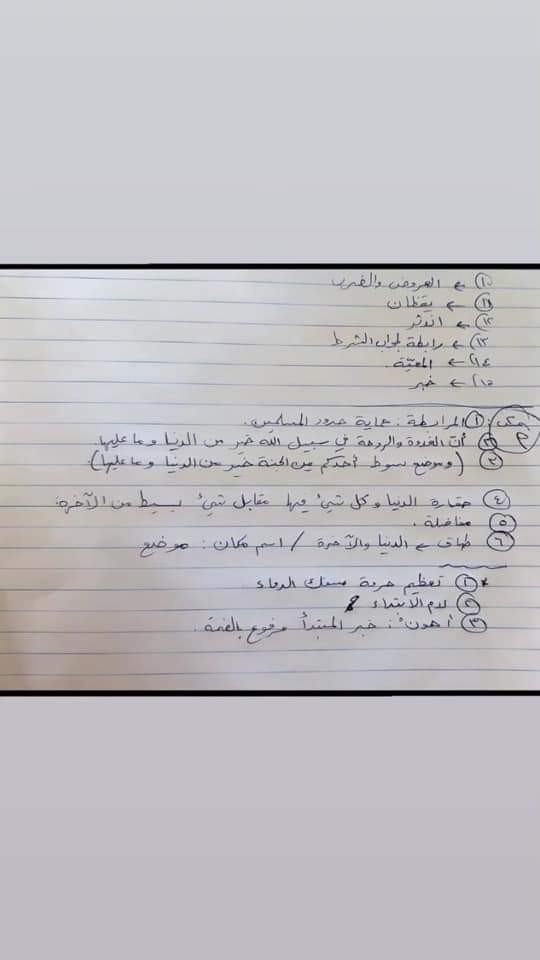 ١٠ ← العروض والضرب
١١ ← يقظان
١٢ ← اندثر
١٣ ← رابطة لجواب الشرط
١٤ ← المعيّة.
١٥ ← خبر
① المرابطة: حماية حدود المسلمين.
② أنّ الغدوة والروحة في سبيل الله خير من الدنيا وما عليها.
③ (وموضع سوط أحدكم من الجنة خير من الدنيا وما عليها).
④ حقارة الدنيا وكل شيء فيها مقابل شيء بسيط من الآخرة.
⑤ مفاضلة.
⑥ طباق ← الدنيا والآخرة / اسم مكان: موضع
* ① تعظيم حرمة سفك الدماء
② لام الابتداء
③ أهونُ: خبر المبتدأ مرفوع بالضمة.